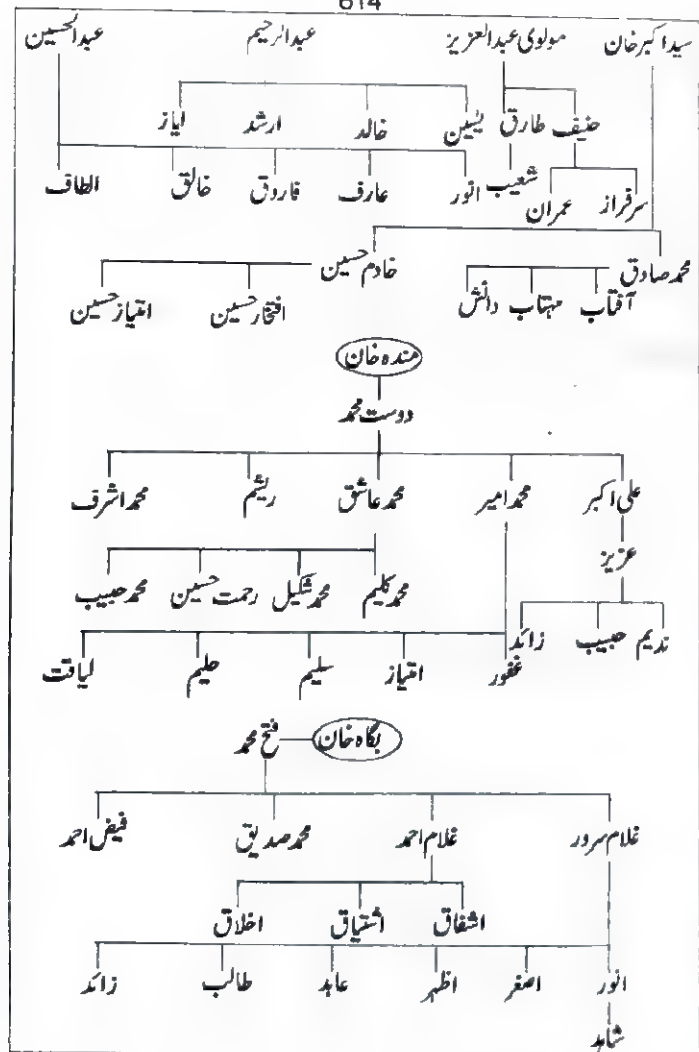 614
سید اکبر خان مولوی عبدالعزیز عبدالرحیم عبدالحسین
یٰسین خالد ارشد ایاز
حنیف طارق
انور عارف فاروق خالق الطاف
سرفراز عمران شعیب
محمد صادق خادم حسین
آفتاب مہتاب دانش افتخار حسین امتیاز حسین
مندہ خان
دوست محمد
علی اکبر محمد امیر محمد عاشق ریشم محمد اشرف
عزیز
محمد کلیم محمد شکیل رحمت حسین محمد حبیب
ندیم حبیب زائد
غفور امتیاز سلیم حلیم لیاقت
بگاہ خان فتح محمد
غلام سرور غلام احمد محمد صدیق فیض احمد
اشفاق اشتیاق اخلاق
انور اصغر اظہر عابد طالب زائد
شاہد